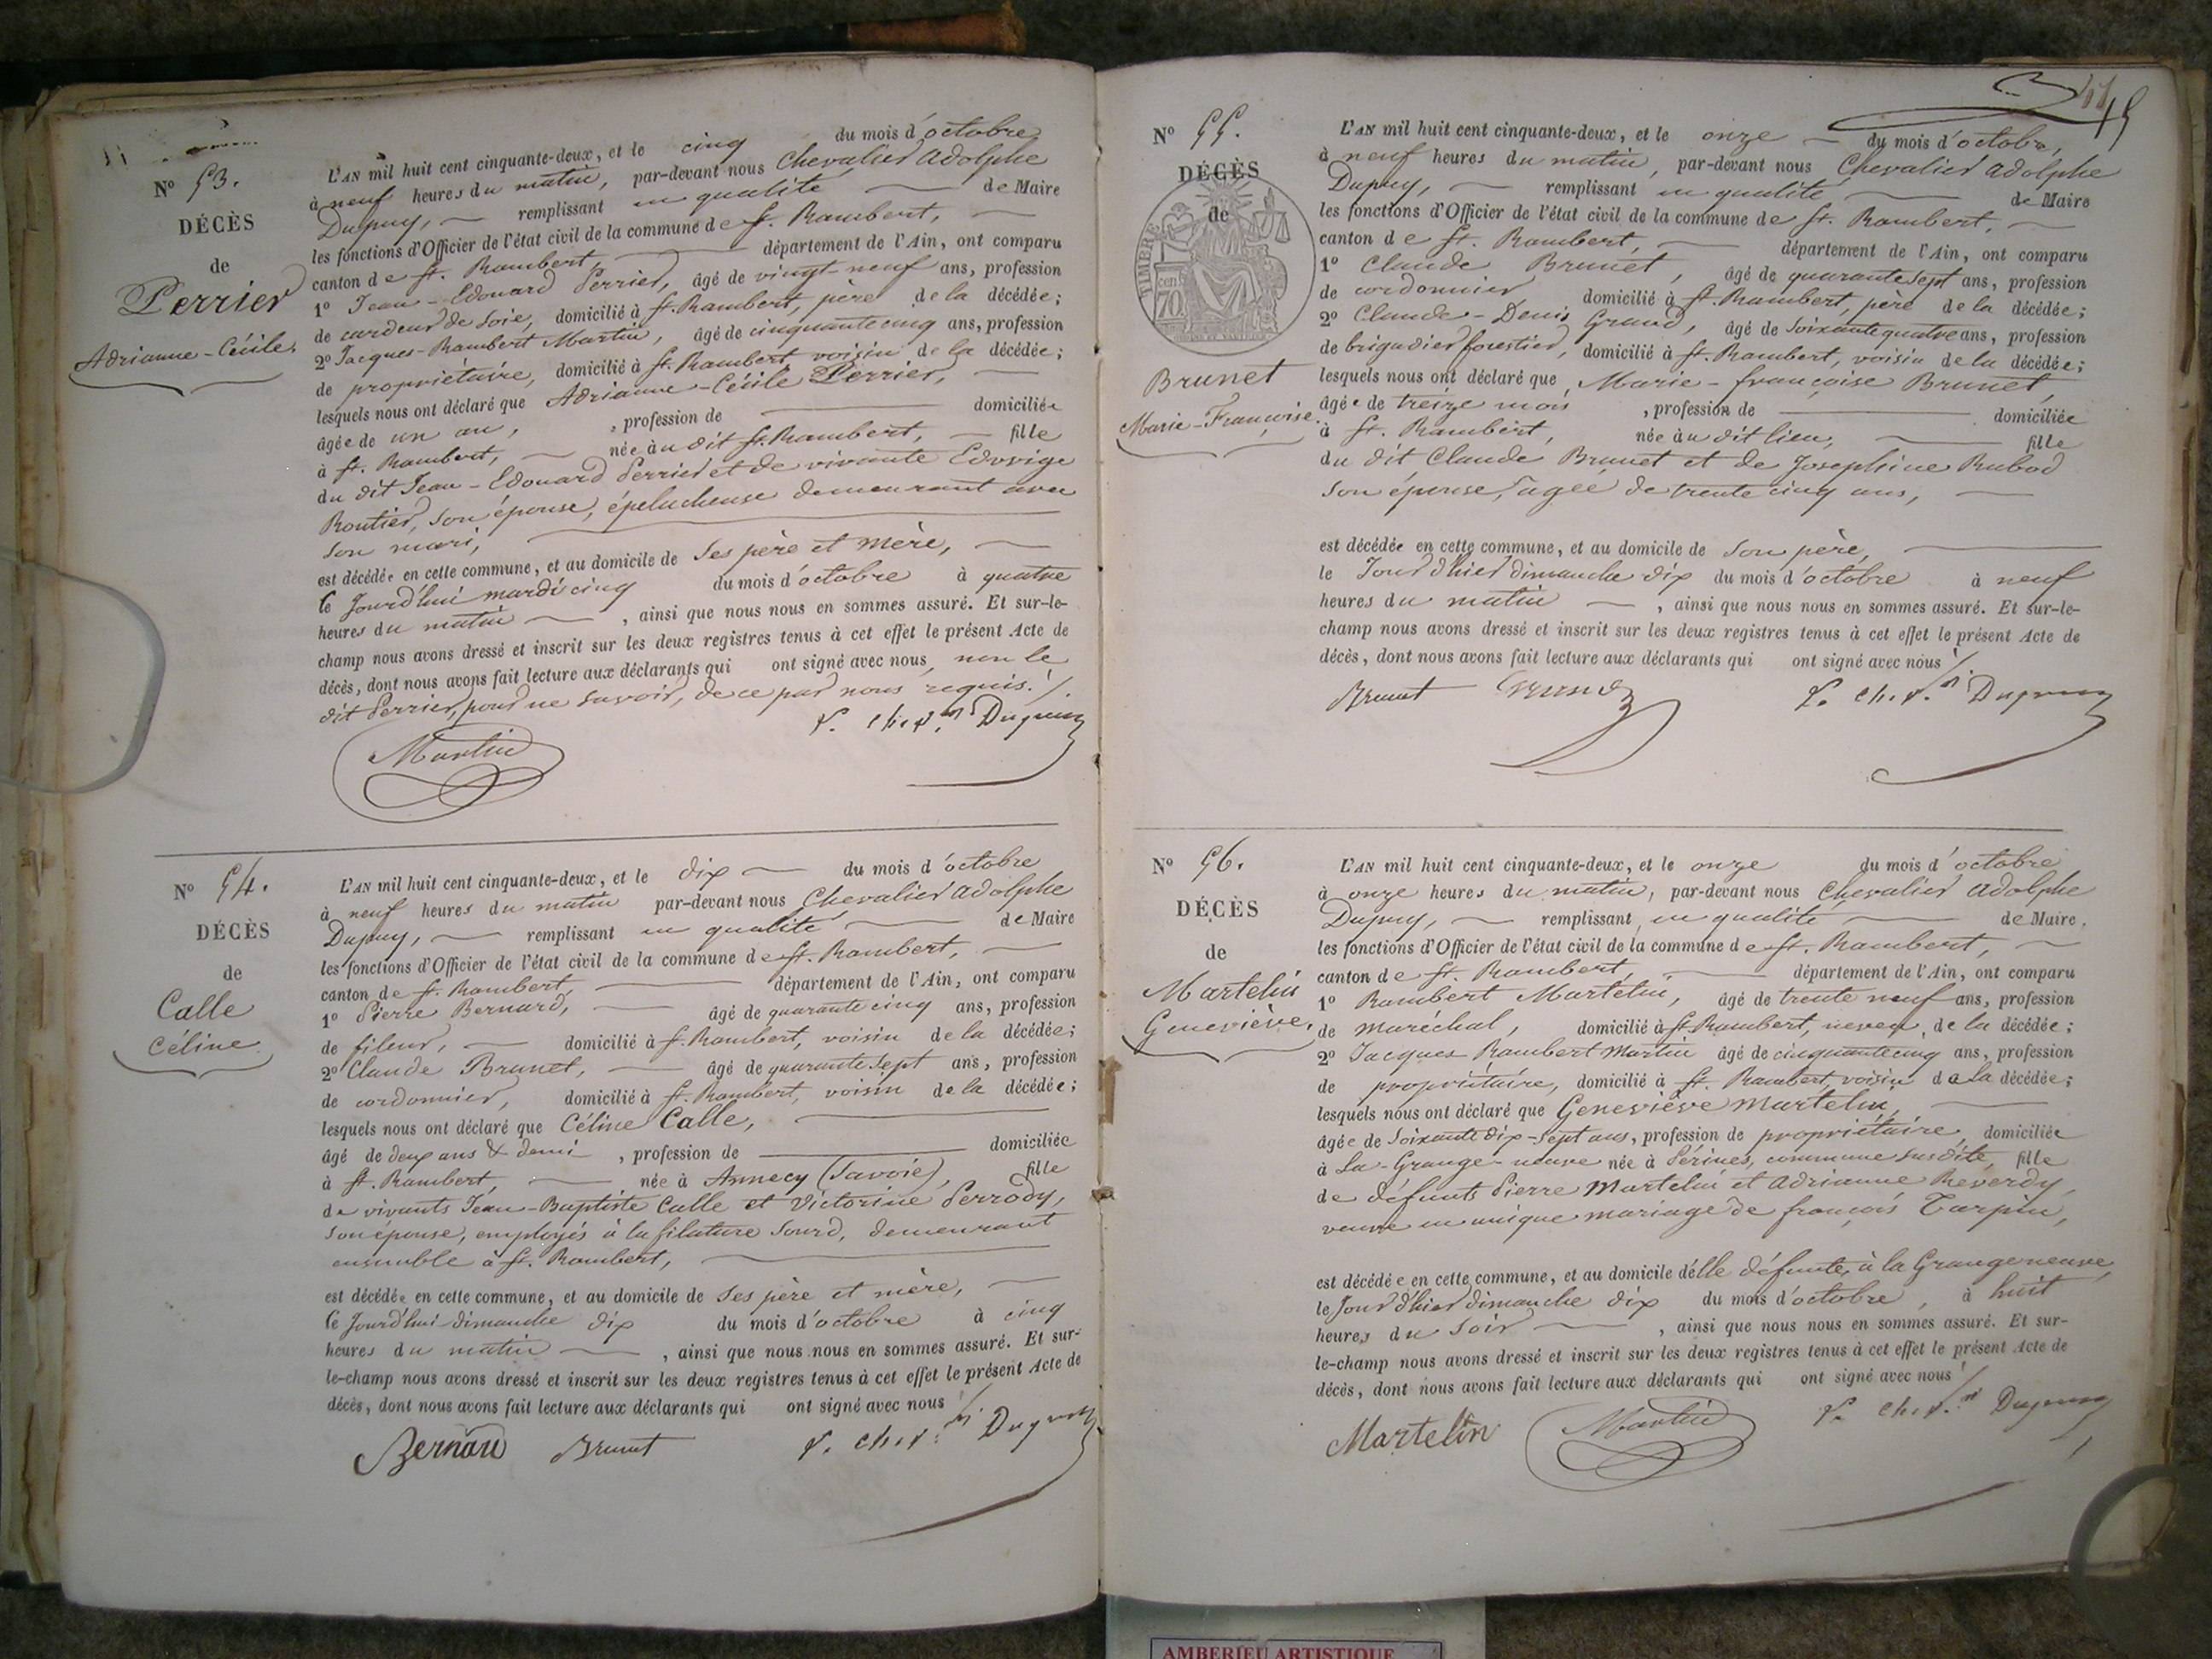 N° 53.
DÉCÈS
de
Perrier
Adrianne-Cécile.
L'AN mil huit cent cinquante-deux, et le cinq du mois d'octobre
à neuf heures du matin, par-devant nous Chevalier Adolphe
Dupuy, remplissant en qualité de Maire
les fonctions d'Officier de l'état civil de la commune de St. Rambert,
canton de St. Rambert, département de l'Ain, ont comparu
1° Jean-Edouard Perrier, âgé de vingt-neuf ans, profession
de cardeur de soie, domicilié à St. Rambert, père de la décédée;
2° Jacques-Rambert Martin, âgé de cinquante cinq ans, profession
de propriétaire, domicilié à St. Rambert voisin de la décédée;
lesquels nous ont déclaré que Adrianne-Cécile Perrier,
âgée de un an, , profession de domiciliée
à St. Rambert, née au dit St. Rambert, fille
du dit Jean-Edouard Perrier et de vivante Edvvige
Routier, son épouse, éplucheuse demeurant avec
son mari,
est décédée en cette commune, et au domicile de ses père et mère,
le Jourd'hui mardi cinq du mois d'octobre à quatre
heures du matin , ainsi que nous nous en sommes assuré. Et sur-le-
champ nous avons dressé et inscrit sur les deux registres tenus à cet effet le présent Acte de
décès, dont nous avons fait lecture aux déclarants qui ont signé avec nous, non le
dit Perrier, pour ne savoir, de ce par nous requis./.
Martin Dupuy
N° 54.
DÉCÈS
de
Calle
Céline
L'AN mil huit cent cinquante-deux, et le dix du mois d'octobre
à neuf heures du matin par-devant nous Chevalier Adolphe
Dupuy, remplissant en qualité de Maire
les fonctions d'Officier de l'état civil de la commune de St. Rambert,
canton de St. Rambert, département de l'Ain, ont comparu
1° Pierre Bernard, âgé de quarante cinq ans, profession
de fileur, domicilié à St. Rambert, voisin de la décédée;
2° Claude Brunet, âgé de quarante sept ans, profession
de cordonnier, domicilié à St. Rambert, voisin de la décédée;
lesquels nous ont déclaré que Céline Calle,
âgé de deux ans & demi , profession de domiciliée
à St. Rambert, née à Annecy (Savoie), fille
de vivants Jean-Baptiste Calle et Victorine Perrody,
son épouse, employés à la filature Sourd, demeurant
ensemble à St. Rambert,
est décédée en cette commune, et au domicile de ses père et mère,
le Jourd'hui dimanche dix du mois d'octobre à cinq
heures du matin , ainsi que nous nous en sommes assuré. Et sur-
le-champ nous avons dressé et inscrit sur les deux registres tenus à cet effet le présent Acte de
décès, dont nous avons fait lecture aux déclarants qui ont signé avec nous ./.
Bernard Brunet Dupuy
45
N° 55.
DÉCÈS
de
TIMBRE
70
Brunet
Marie-Françoise.
L'AN mil huit cent cinquante-deux, et le onze du mois d'octobre,
à neuf heures du matin, par-devant nous Chevalier Adolphe
Dupuy, remplissant en qualité de Maire
les fonctions d'Officier de l'état civil de la commune de St. Rambert,
canton de St. Rambert, département de l'Ain, ont comparu
1° Claude Brunet, âgé de quarante sept ans, profession
de cordonnier domicilié à St. Rambert, père de la décédée;
2° Claude-Denis Grand, âgé de Soixante quatre ans, profession
de brigadier forestier, domicilié à St. Rambert, voisin de la décédée;
lesquels nous ont déclaré que Marie-françoise Brunet,
âgée de treize mois , profession de domiciliée
à St. Rambert, née au dit lieu, fille
du dit Claude Brunet et de Josephine Rubod
son épouse, agée de trente cinq ans,
est décédée en cette commune, et au domicile de son père,
le Jour d'hier dimanche dix du mois d'octobre à neuf
heures du matin , ainsi que nous nous en sommes assuré. Et sur-le-
champ nous avons dressé et inscrit sur les deux registres tenus à cet effet le présent Acte de
décès, dont nous avons fait lecture aux déclarants qui ont signé avec nous ./.
Brunet Grand Dupuy
N° 56.
DÉCÈS
de
Martelin
Geneviève.
L'AN mil huit cent cinquante-deux, et le onze du mois d'octobre
à onze heures du matin, par-devant nous Chevalier Adolphe
Dupuy, remplissant en qualité de Maire.
les fonctions d'Officier de l'état civil de la commune de St. Rambert,
canton de St. Rambert, département de l'Ain, ont comparu
1° Rambert Martelin, âgé de trente neuf ans, profession
de maréchal, domicilié à St. Rambert, neveu de la décédée;
2° Jacques Rambert Martin âgé de cinquante cinq ans, profession
de propriétaire, domicilié à St. Rambert, voisin de la décédée;
lesquels nous ont déclaré que Geneviève Martelin,
âgée de Soixante dix-sept ans, profession de propriétaire, domiciliée
à La-Grange-neuve née à Sérines, commune susdite, fille
de défunts Pierre Martelin et Adrianne Reverdy,
veuve en unique mariage de françois Tarpin,
est décédée en cette commune, et au domicile d'elle défunte, à la Grange neuve,
le Jour d'hier dimanche dix du mois d'octobre, à huit
heures du soir , ainsi que nous nous en sommes assuré. Et sur-
le-champ nous avons dressé et inscrit sur les deux registres tenus à cet effet le présent Acte de
décès, dont nous avons fait lecture aux déclarants qui ont signé avec nous ./.
Martelin Martin Dupuy
AMBERIEU ARTISTIQUE